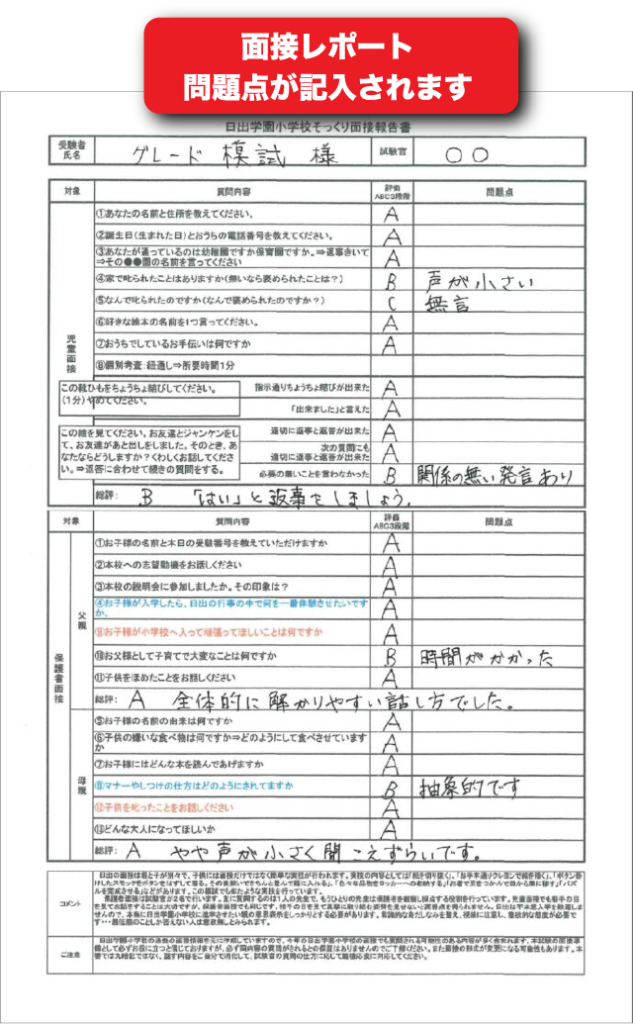 面接レポート
問題点が記入されます
日出学園小学校そっくり面接報告書
受験者氏名 グレード 模試 様 試験官 〇〇
対象 質問内容 評価ABC3段階 問題点
児童面接
①あなたの名前と住所を教えてください。 A
②誕生日(生まれた日)とおうちの電話番号を教えてください。 A
③あなたが通っているのは幼稚園ですか保育園ですか。⇒返事きいて
⇒その●●園の名前を言ってください A
④家で叱られたことはありますか(無いなら褒められたことは?) B 声が小さい
⑤なんで叱られたのですか(なんで褒められたのですか?) C 無言
⑥好きな絵本の名前を1つ言ってください。 A
⑦おうちでしているお手伝いは何ですか A
⑧個別考査:紐通し⇒所要時間1分
この靴ひもをちょうちょ結びしてください。
(1分)やめてください。
指示通りちょうちょ結びが出来た A
「出来ました」と言えた A
この絵を見てください。お友達とジャンケンをして、お友達があと出しをしました。そのとき、あなたならどうしますか?くわしくお話してください。⇒返答に合わせて続きの質問をする。
適切に返事と返答が出来た A
次の質問にも
適切に返事と返答が出来た A
必要の無いことを言わなかった B 関係の無い発言あり
総評: B 「はい」と返事をしましょう。
対象 質問内容 評価ABC3段階 問題点
保護者面接
父親
①お子様の名前と本日の受験番号を教えていただけますか A
②本校への志望動機をお話しください A
③本校の説明会に参加しましたか。その印象は? A
④お子様が入学したら、日出の行事の中で何を一番体験させたいですか。 A
お子様が小学校へ入って頑張ってほしいことは何ですか A
⑩お父様として子育てで大変なことは何ですか B 時間がかかった
⑪子供をほめたことをお話しください A
総評: A 全体的に解かりやすい話し方でした。
母親
⑤お子様の名前の由来は何ですか A
⑥子供の嫌いな食べ物は何ですか⇒どのようにして食べさせていますか A
⑦お子様にはどんな本を読んであげますか A
⑧マナーやしつけの仕方はどのようにされてますか B 抽象的です
⑫子供を叱ったことをお話しください A
⑬どんな大人になってほしいか A
総評: A やや声が小さく聞こえずらいです。
コメント
ご注意